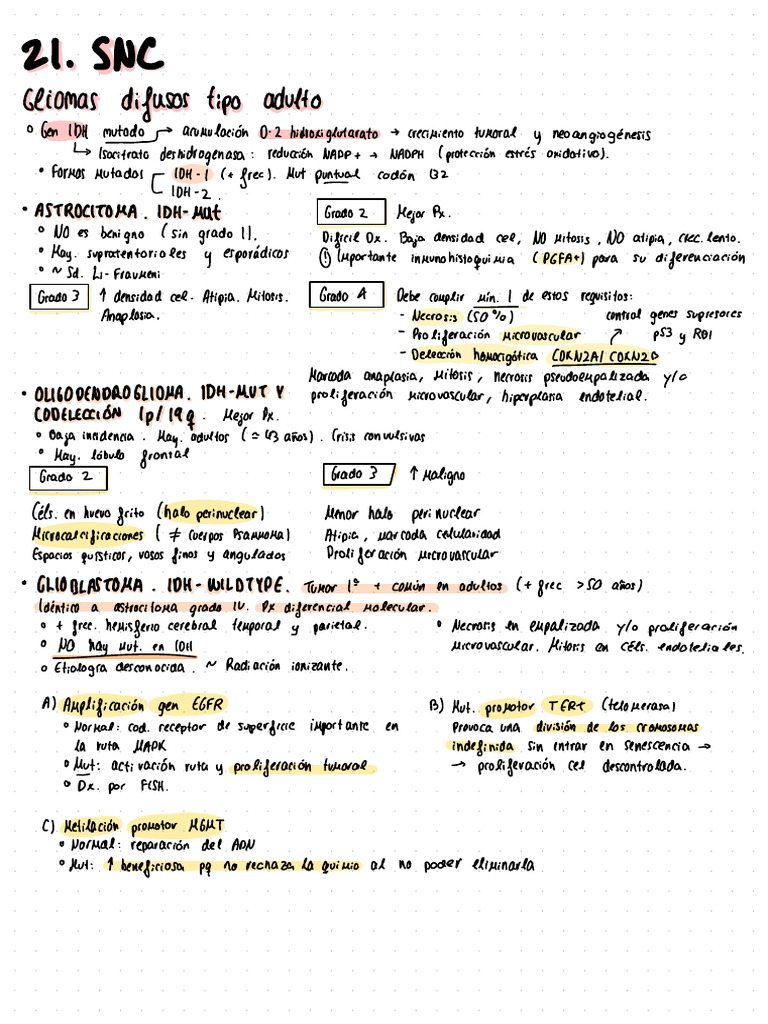 21. SNC
Gliomas difusos tipo adulto
Gen IDH mutado → acumulación D-2 hidroxiglutarato → crecimiento tumoral y neoangiogénesis
↳ Isocitrato deshidrogenasa: reducción NADP+ → NADPH (protección estrés oxidativo).
• Formas mutados IDH-1 (+ frec). Mut puntual codón 132
IDH-2.
• ASTROCITOMA. IDH-Mut
• NO es benigno (sin grado 1).
• May. supratentoriales y esporádicos
• ~ Sd. Li-Fraumeni
Grado 2 Mejor Px.
Difícil Dx. Baja densidad cel, NO mitosis, NO atipia, crec. lento.
(!) Importante inmunohistoquimia (PGFA+) para su diferenciación
Grado 3 ↑ densidad cel. Atipia. Mitosis.
Anaplasia.
Grado 4 Debe cumplir min. 1 de estos requisitos:
- Necrosis (50%)
- Proliferación microvascular
- Delección homocigótica CDKN2A/CDKN2B
control genes supresores
p53 y RB1
Marcada anaplasia, mitosis, necrosis pseudoempalizada y/o
proliferación microvascular, hiperplasia endotelial.
• OLIGODENDROGLIOMA. IDH-MUT Y
CODELECCIÓN 1p/19q. Mejor Px.
• Baja incidencia. May. adultos (≃ 43 años). Crisis convulsivas
• May. lóbulo frontal
Grado 2
Céls. en huevo frito (halo perinuclear)
Microcalcificaciones (≠ cuerpos Psammoma)
Espacios quísticos, vasos finos y angulados
Grado 3 ↑ Maligno
Menor halo perinuclear
Atipia, marcada celularidad
Proliferación microvascular
• GLIOBLASTOMA. IDH-WILDTYPE. Tumor 1º + común en adultos (+ frec >50 años)
Idéntico a astrocitoma grado IV. Dx diferencial molecular.
• + frec. hemisferio cerebral temporal y parietal.
• NO hay mut. en IDH
• Etiología desconocida. ~ Radiación ionizante.
• Necrosis en empalizada y/o proliferación
microvascular. Mitosis en céls. endoteliales.
A) Amplificación gen EGFR
• Normal: cod. receptor de superficie importante en
la ruta MAPK
• Mut: activación ruta y proliferación tumoral.
• Dx. por FISH.
B) Mut. promotor TERT (telomerasa)
Provoca una división de los cromosomas
indefinida sin entrar en senescencia →
→ proliferación cel descontrolada.
C) Metilación promotor MGMT
• Normal: reparación del ADN
• Mut: ↑ beneficiosa pq no rechaza la quimio al no poder eliminarla